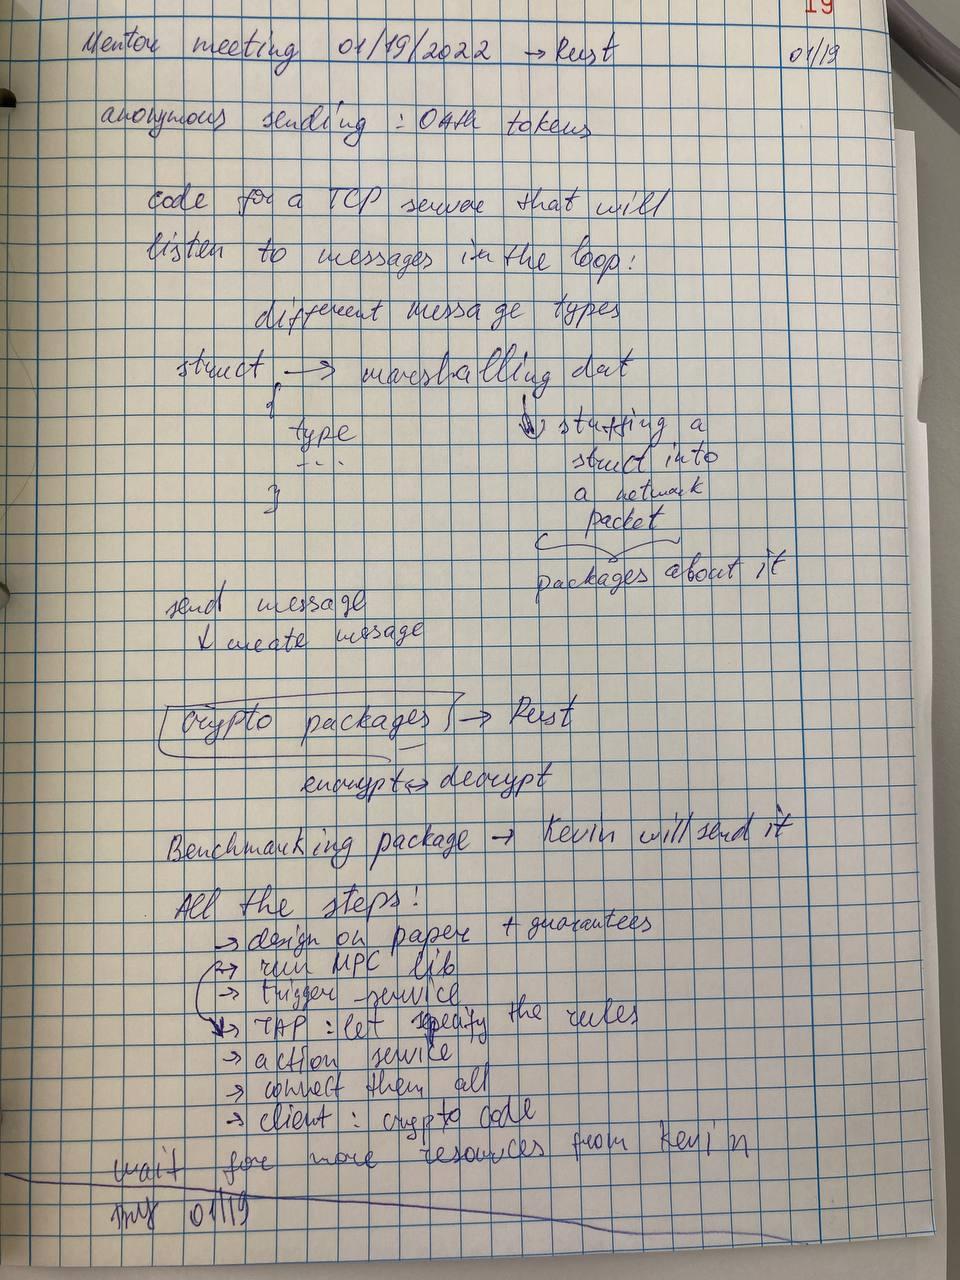 19
Mentor meeting 01/19/2022 → Rust
01/19
anonymous sending : OAth tokens
code for a TCP server that will
listen to messages in the loop:
different message types
struct → marshalling dat
{
type
- - -
}
↓ stuffing a
struct into
a network
packet
packages about it
send message
↓ create message
crypto packages → Rust
encrypt ↔ decrypt
Benchmarking package → Kevin will send it
All the steps:
→ design on paper + guarantees
→ run MPC lib
→ trigger service
→ TAP : let specify the rules
→ action service
→ connect them all
→ client : crypto code
wait for more resources from Kevin
01/19